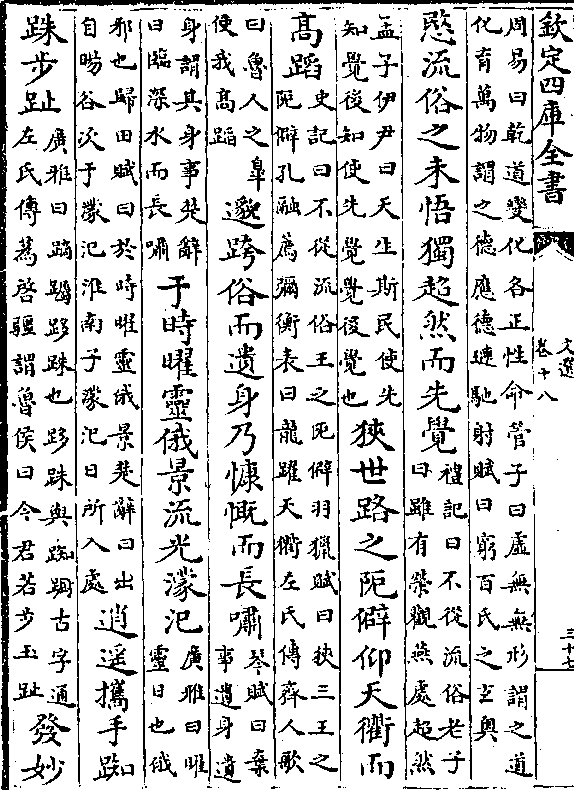 欽定四庫全書
文選
卷十八
三十七
周易曰乾道變化各正性命管子曰虛無無形謂之道
化育萬物謂之德應德璉馳射賦曰窮百氏之玄奥
愍流俗之未悟獨超然而先覺
禮記曰不從流俗老子
曰雖有榮觀燕處超然
孟子伊尹曰天生斯民使先
知覺後知使先覺覺後覺也
狹世路之阨僻仰天衢而
高蹈
史記曰不從流俗王之阨僻羽獵賦曰狹三王之
阨僻孔融薦禰衡表曰龍躍天衢左氏傳齊人歌
曰魯人之臯
使我高蹈
邈跨俗而遺身乃慷慨而長嘯
琴賦曰棄
事遺身遺
身謂其身事楚辭
曰臨深水而長嘯
于時曜靈俄景流光濛汜
廣雅曰曜
靈日也俄
邪也歸田賦曰於時曜靈俄景楚辭曰出
自暘谷次于濛汜淮南子濛汜日所入處
逍遥攜手踟
跦步趾
廣雅曰蹢躅跢跦也跢跦與踟蹰古字通
左氏傳蒍啓疆謂魯侯曰今君若步玉趾
發妙